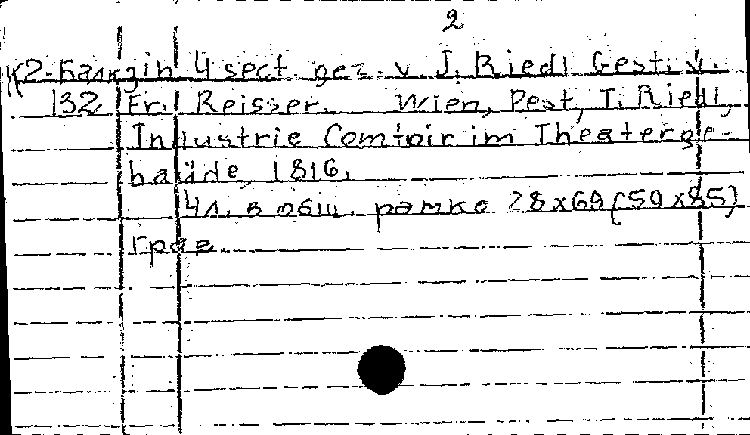 2
К2-Балк 4 sect. gez. v. J. Riedl Gest. v.
132 Fr. Reisser. Wien, Pest, J. Riedl,
Industrie Comtoir im Theaterge-
baüde, 1816.
4 л. в общ. рамке 78x69 (59x85)
грав.